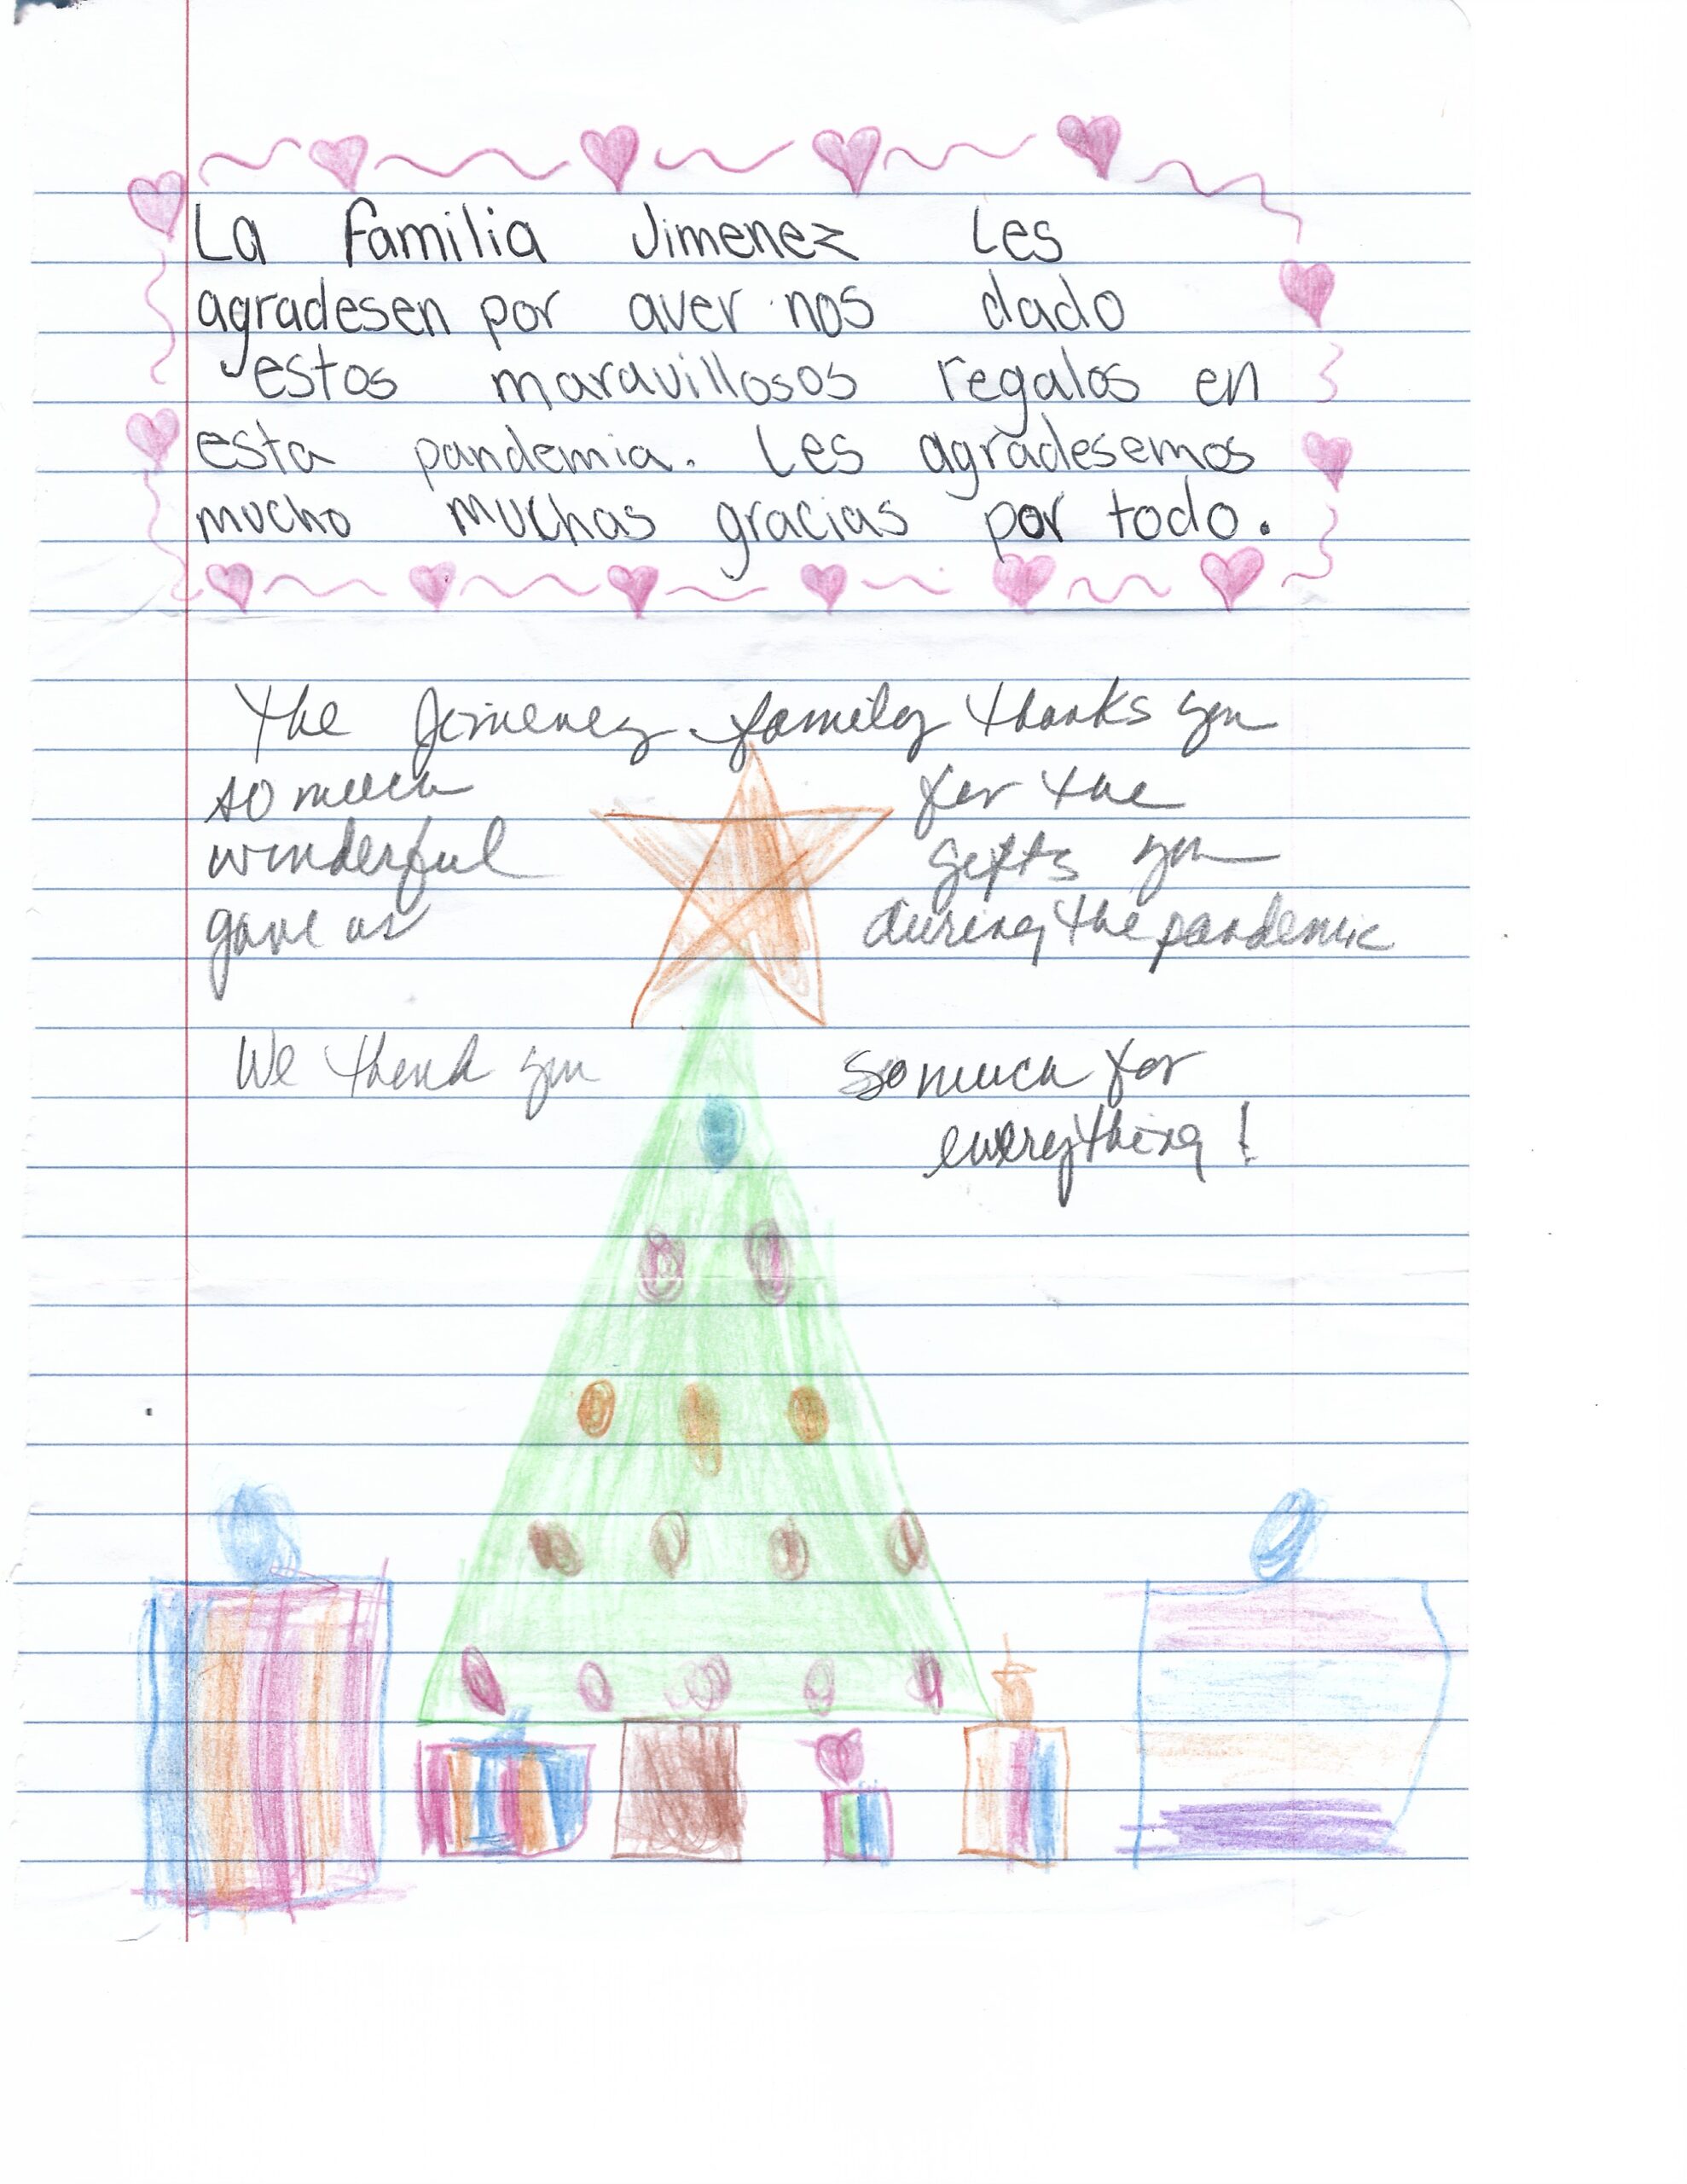 La familia Jimenez Les
agradesen por aver nos dado
estos maravillosos regalos en
esta pandemia. Les agradesemos
mucho muchas gracias por todo.
The Jimenez family thanks you
so much for the
wonderful gifts you
gave us during the pandemic
We thank you so much for
everything!